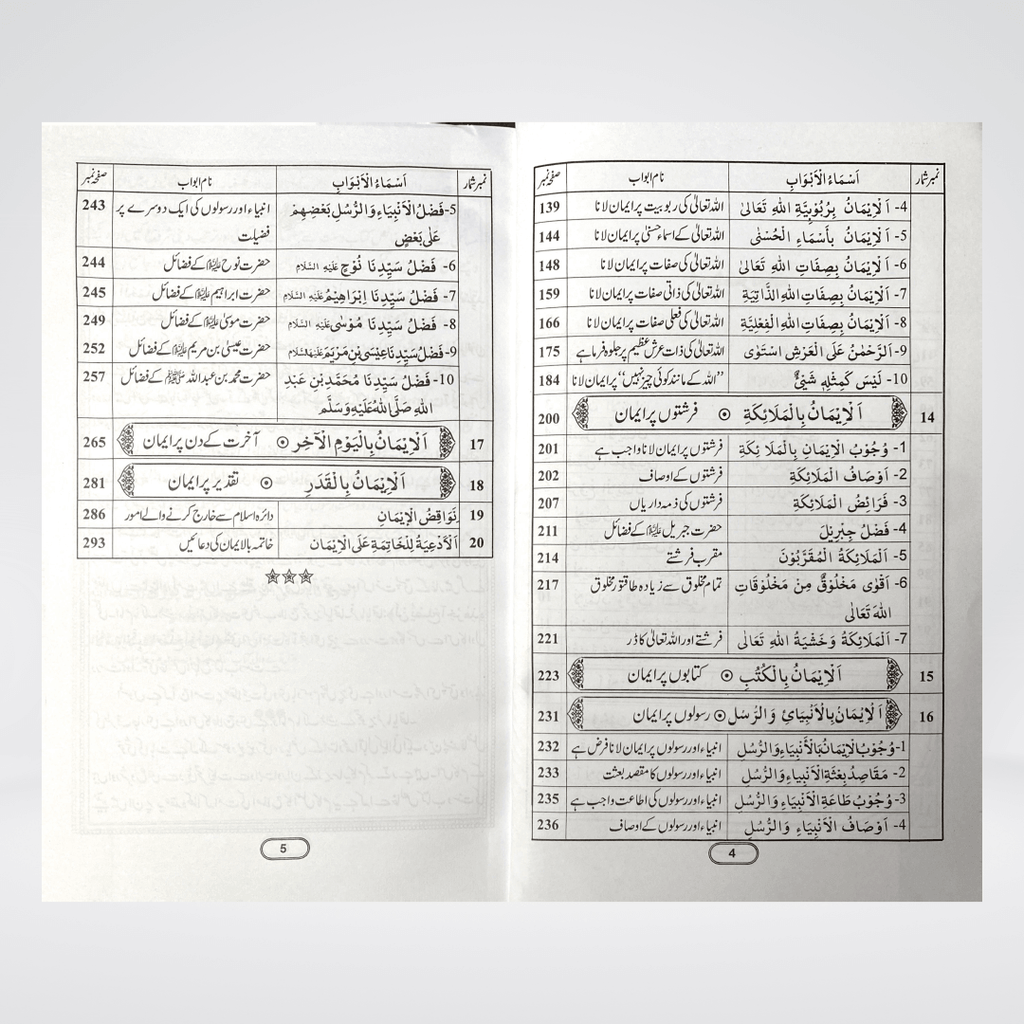 نمبر شمار اَسْمَاءُ الْاَبْوَابِ نام ابواب صفحہ نمبر
4- اَلْاِيْمَانُ بِرُبُوْبِيَّةِ اللهِ تَعَالىٰ اللہ تعالیٰ کی ربوبیت پر ایمان لانا 139
5- اَلْاِيْمَانُ بِأَسْمَاءِ الْحُسْنٰى اللہ تعالیٰ کے اسماء حسنیٰ پر ایمان لانا 144
6- اَلْاِيْمَانُ بِصِفَاتِ اللهِ تَعَالىٰ اللہ تعالیٰ کی صفات پر ایمان لانا 148
7- اَلْاِيْمَانُ بِصِفَاتِ اللهِ الذَّاتِيَّةِ اللہ تعالیٰ کی ذاتی صفات پر ایمان لانا 159
8- اَلْاِيْمَانُ بِصِفَاتِ اللهِ الْفِعْلِيَّةِ اللہ تعالیٰ کی فعلی صفات پر ایمان لانا 166
9- اَلرَّحْمٰنُ عَلَى الْعَرْشِ اسْتَوٰى اللہ تعالیٰ کی ذات عرش عظیم پر جلوہ فرما ہے 175
10- لَيْسَ كَمِثْلِهٖ شَىْءٌ ’’اللہ کے مانند کوئی چیز نہیں‘‘ پر ایمان لانا 184
14 اَلْاِيْمَانُ بِالْمَلَائِكَةِ ⊙ فرشتوں پر ایمان 200
1- وُجُوْبُ الْاِيْمَانِ بِالْمَلَائِكَةِ فرشتوں پر ایمان لانا واجب ہے 201
2- اَوْصَافُ الْمَلَائِكَةِ فرشتوں کے اوصاف 202
3- فَرَائِضُ الْمَلَائِكَةِ فرشتوں کی ذمہ داریاں 207
4- فَضْلُ جِبْرِيْلَ حضرت جبریل علیہ السلام کے فضائل 211
5- اَلْمَلَائِكَةُ الْمُقَرَّبُوْنَ مقرب فرشتے 214
6- اَقْوٰى مَخْلُوْقٌ مِنْ مَخْلُوْقَاتِ تمام مخلوق سے زیادہ طاقتور مخلوق 217
اللهِ تَعَالٰى
7- اَلْمَلَائِكَةُ وَخَشْيَةُ اللهِ تَعَالٰى فرشتے اور اللہ تعالیٰ کا ڈر 221
15 اَلْاِيْمَانُ بِالْكُتُبِ ⊙ کتابوں پر ایمان 223
16 اَلْاِيْمَانُ بِالْاَنْبِيَائِ وَالرُّسُلِ ⊙ رسولوں پر ایمان 231
1- وُجُوْبُ الْاِيْمَانِ بِالْاَنْبِيَاءِ وَالرُّسُلِ انبیاء اور رسولوں پر ایمان لانا فرض ہے 232
2- مَقَاصِدُ بِعْثَةِ الْاَنْبِيَاءِ وَالرُّسُلِ انبیاء اور رسولوں کا مقصد بعثت 233
3- وُجُوْبُ طَاعَةِ الْاَنْبِيَاءِ وَالرُّسُلِ انبیاء اور رسولوں کی اطاعت واجب ہے 235
4- اَوْصَافُ الْاَنْبِيَاءِ وَالرُّسُلِ انبیاء اور رسولوں کے اوصاف 236
4
نمبر شمار اَسْمَاءُ الْاَبْوَابِ نام ابواب صفحہ نمبر
5- فَضْلُ الْاَنْبِيَاءِ وَالرُّسُلِ بَعْضِهِمْ انبیاء اور رسولوں کی ایک دوسرے پر 243
عَلٰى بَعْضٍ فضیلت
6- فَضْلُ سَيِّدِنَا نُوْحٍ عَلَيْهِ السَّلَام حضرت نوح علیہ السلام کے فضائل 244
7- فَضْلُ سَيِّدِنَا اِبْرَاهِيْمُ عَلَيْهِ السَّلَام حضرت ابراہیم علیہ السلام کے فضائل 245
8- فَضْلُ سَيِّدِنَا مُوْسٰى عَلَيْهِ السَّلَام حضرت موسیٰ علیہ السلام کے فضائل 249
9- فَضْلُ سَيِّدِنَا عِيْسَى بْنِ مَرْيَمَ عَلَيْهِ السَّلَام حضرت عیسیٰ بن مریم علیہ السلام کے فضائل 252
10- فَضْلُ سَيِّدِنَا مُحَمَّدِ بْنِ عَبْدِ حضرت محمد بن عبداللہ ﷺ کے فضائل 257
اللهِ صَلَّى اللهُ عَلَيْهِ وَسَلَّم
17 اَلْاِيْمَانُ بِالْيَوْمِ الْآخِرِ ⊙ آخرت کے دن پر ایمان 265
18 اَلْاِيْمَانُ بِالْقَدَرِ ⊙ تقدیر پر ایمان 281
19 نَوَاقِضُ الْاِيْمَانِ دائرہ اسلام سے خارج کرنے والے امور 286
20 اَلْاَدْعِيَةُ لِلْخَاتِمَةِ عَلَى الْاِيْمَانِ خاتمہ بالایمان کی دعائیں 293
5